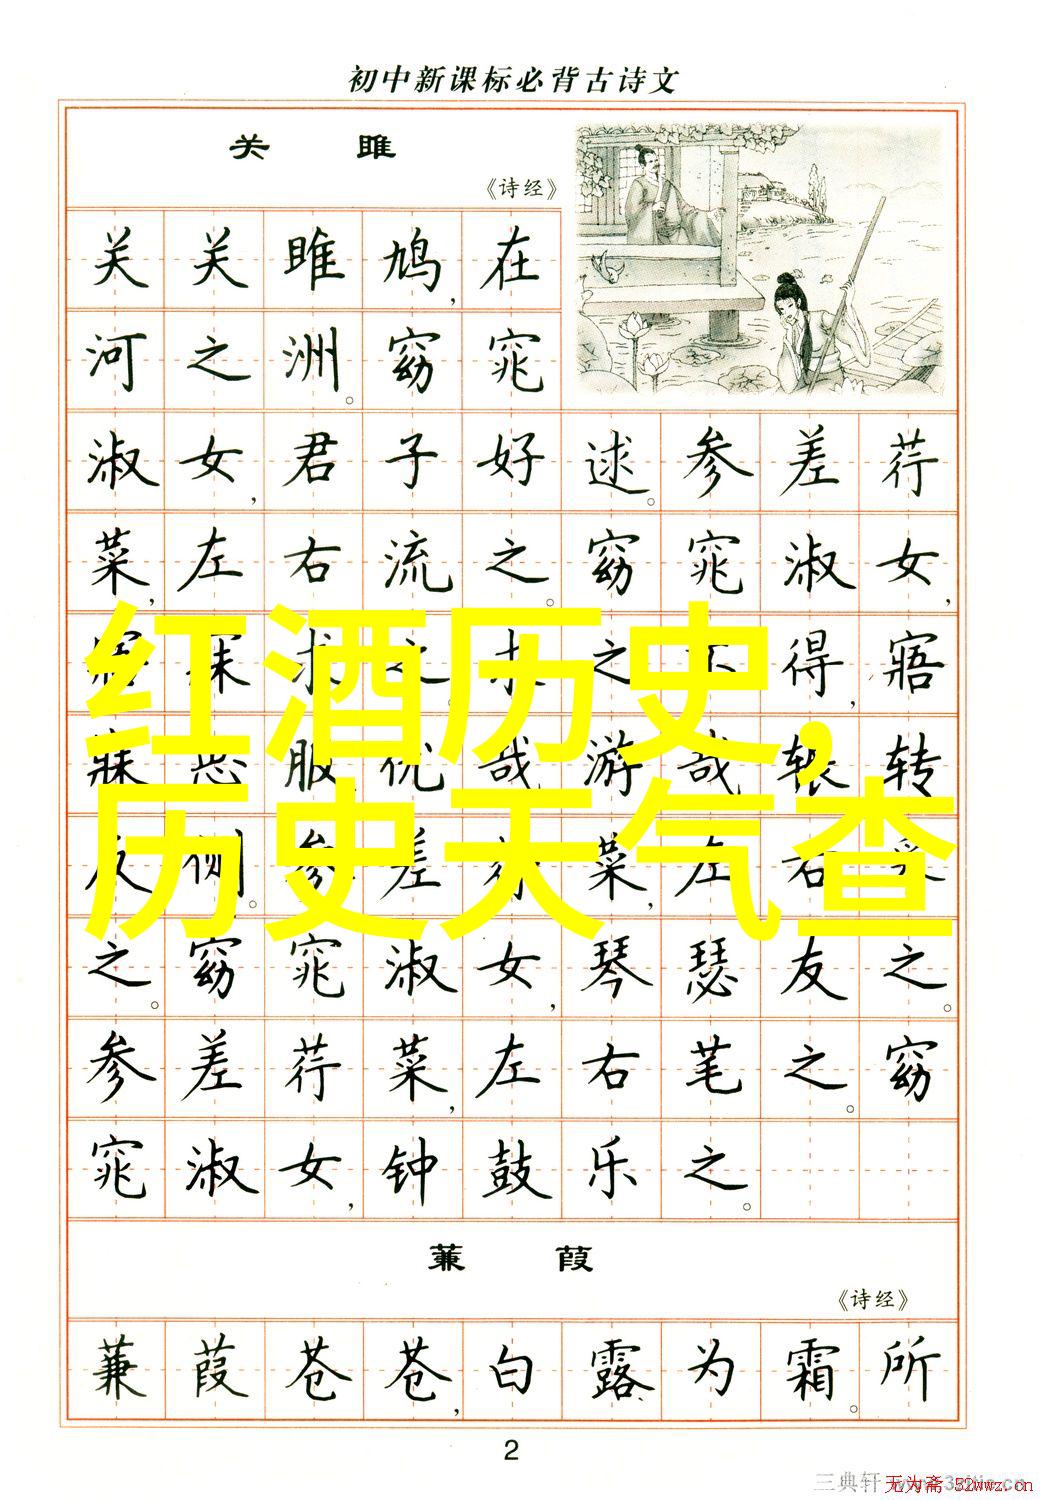 初中新课标必背古诗文
关 雎
《诗经》
关关雎鸠,在
河之洲。窈窕
淑女,君子好逑。参差荇
菜,左右流之。窈窕淑女,
红酒历史,
寤寐求之求之不得,寤
寐思服优哉游哉辗转
历史天气查
反侧。参差荇菜,左右采
之。窈窕淑女,琴瑟友之。
参差荇菜,左右芼之。窈
窕淑女,钟鼓乐之。
蒹 葭
《诗经》
蒹葭苍苍,白露为霜。所
2
三典轩
无为斋 52wwz.cn